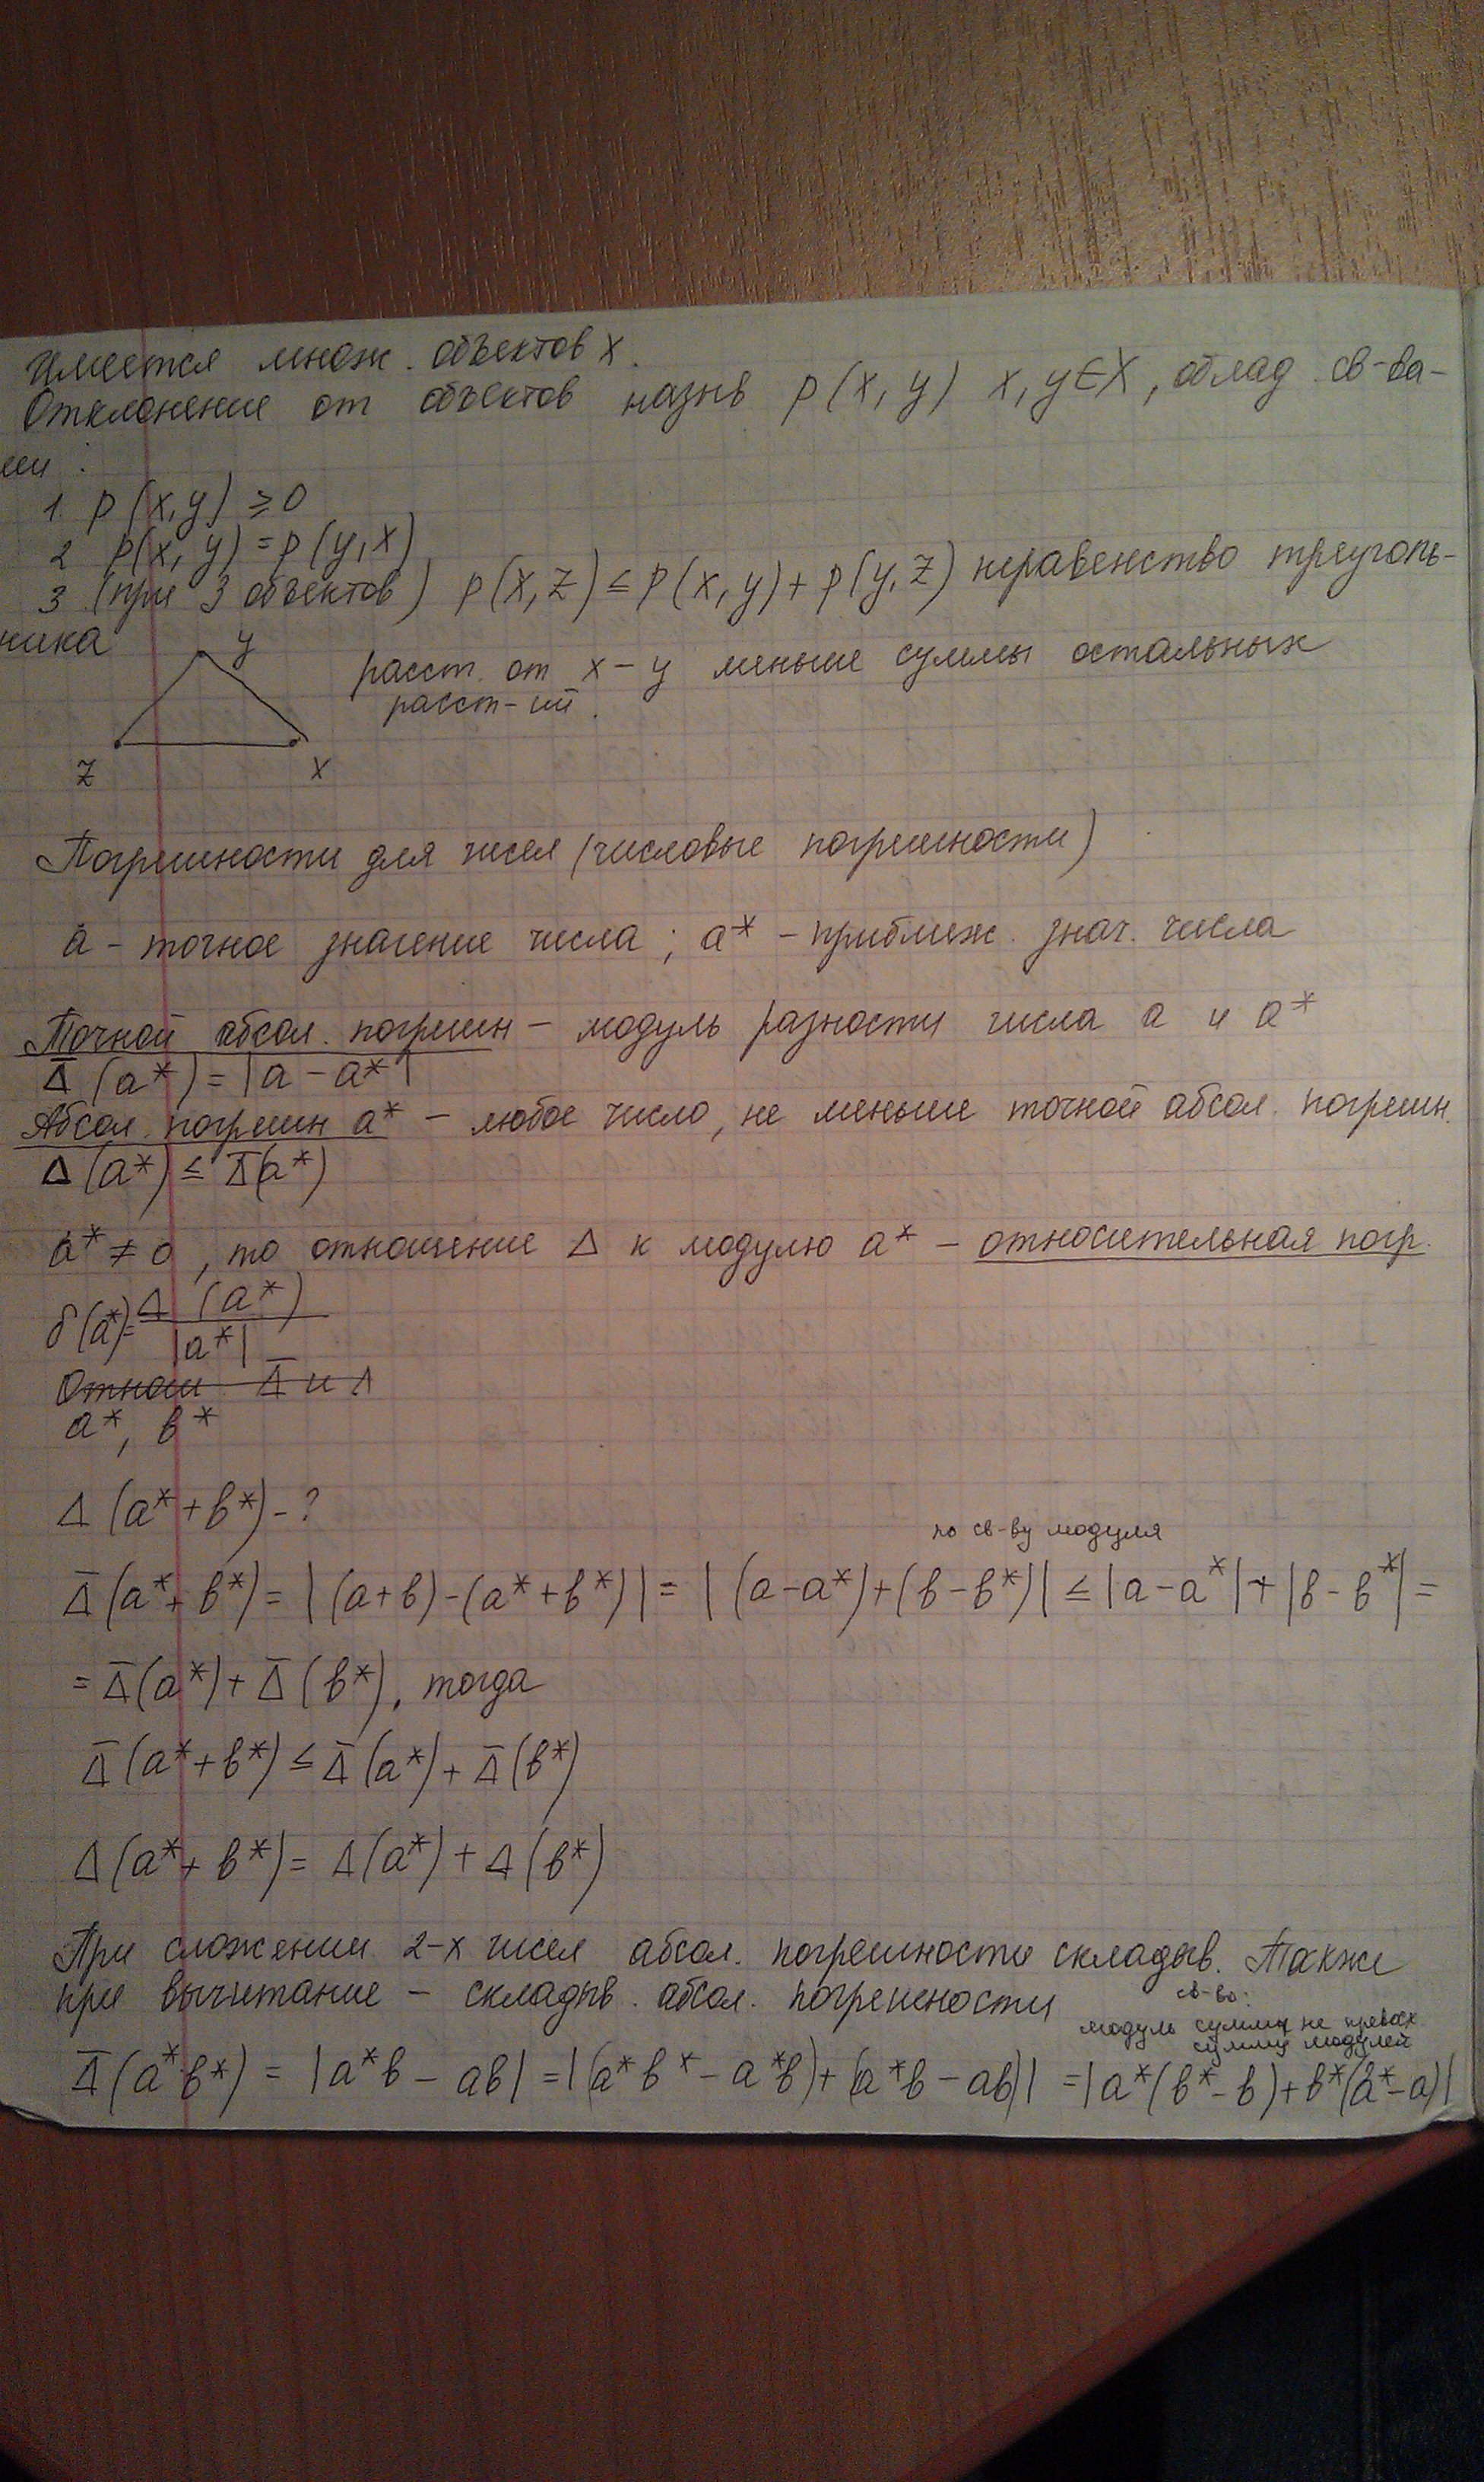 Имеется множ. объектов X.
Отклонение от объектов назыв p(x, y) x, y ∈ X, облад. св-ва-
ми:
1. p(x, y) ≥ 0
2 p(x, y) = p(y, x)
3 (при 3 объектов) p(x, z) ≤ p(x, y) + p(y, z) неравенство треуголь-
ника
y
расст. от x - y меньше суммы остальных
расст-ий.
z x
Погрешности для чисел (числовые погрешности)
a - точное значение числа; a* - приближ. знач. числа
Точной абсол. погрешн - модуль разности числа a и a*
Δ̅ (a*) = |a - a*|
Абсол. погрешн a* - любое число, не меньше точной абсол. погрешн.
Δ (a*) ≤ Δ̅(a*)
a* ≠ 0, то отношение Δ к модулю a* - относительная погр.
δ(a*) = Δ (a*)
|a*|
Отнош Δ̅ и Δ
a*, b*
Δ (a* + b*) - ?
по св-ву модуля
Δ̅ (a* + b*) = |(a+b) - (a* + b*)| = |(a - a*) + (b - b*)| ≤ |a - a*| + |b - b*| =
= Δ̅(a*) + Δ̅(b*), тогда
Δ̅(a* + b*) ≤ Δ̅(a*) + Δ̅(b*)
Δ(a* + b*) = Δ(a*) + Δ(b*)
При сложении 2-х чисел абсол. погрешности складыв. Также
при вычитание - складыв. абсол. погрешности
св-во:
модуль суммы не превосх.
суммы модулей
Δ̅(a* b*) = |a*b - ab| = |(a*b* - a*b) + (a*b - ab)| = |a*(b* - b) + b*(a* - a)|